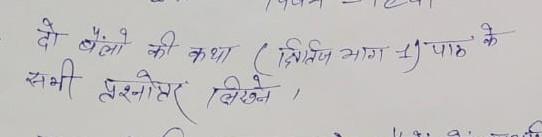 दो बैलों की कथा (क्षितिज भाग 1) पाठ के
सभी प्रश्नोत्तर लिखने ।